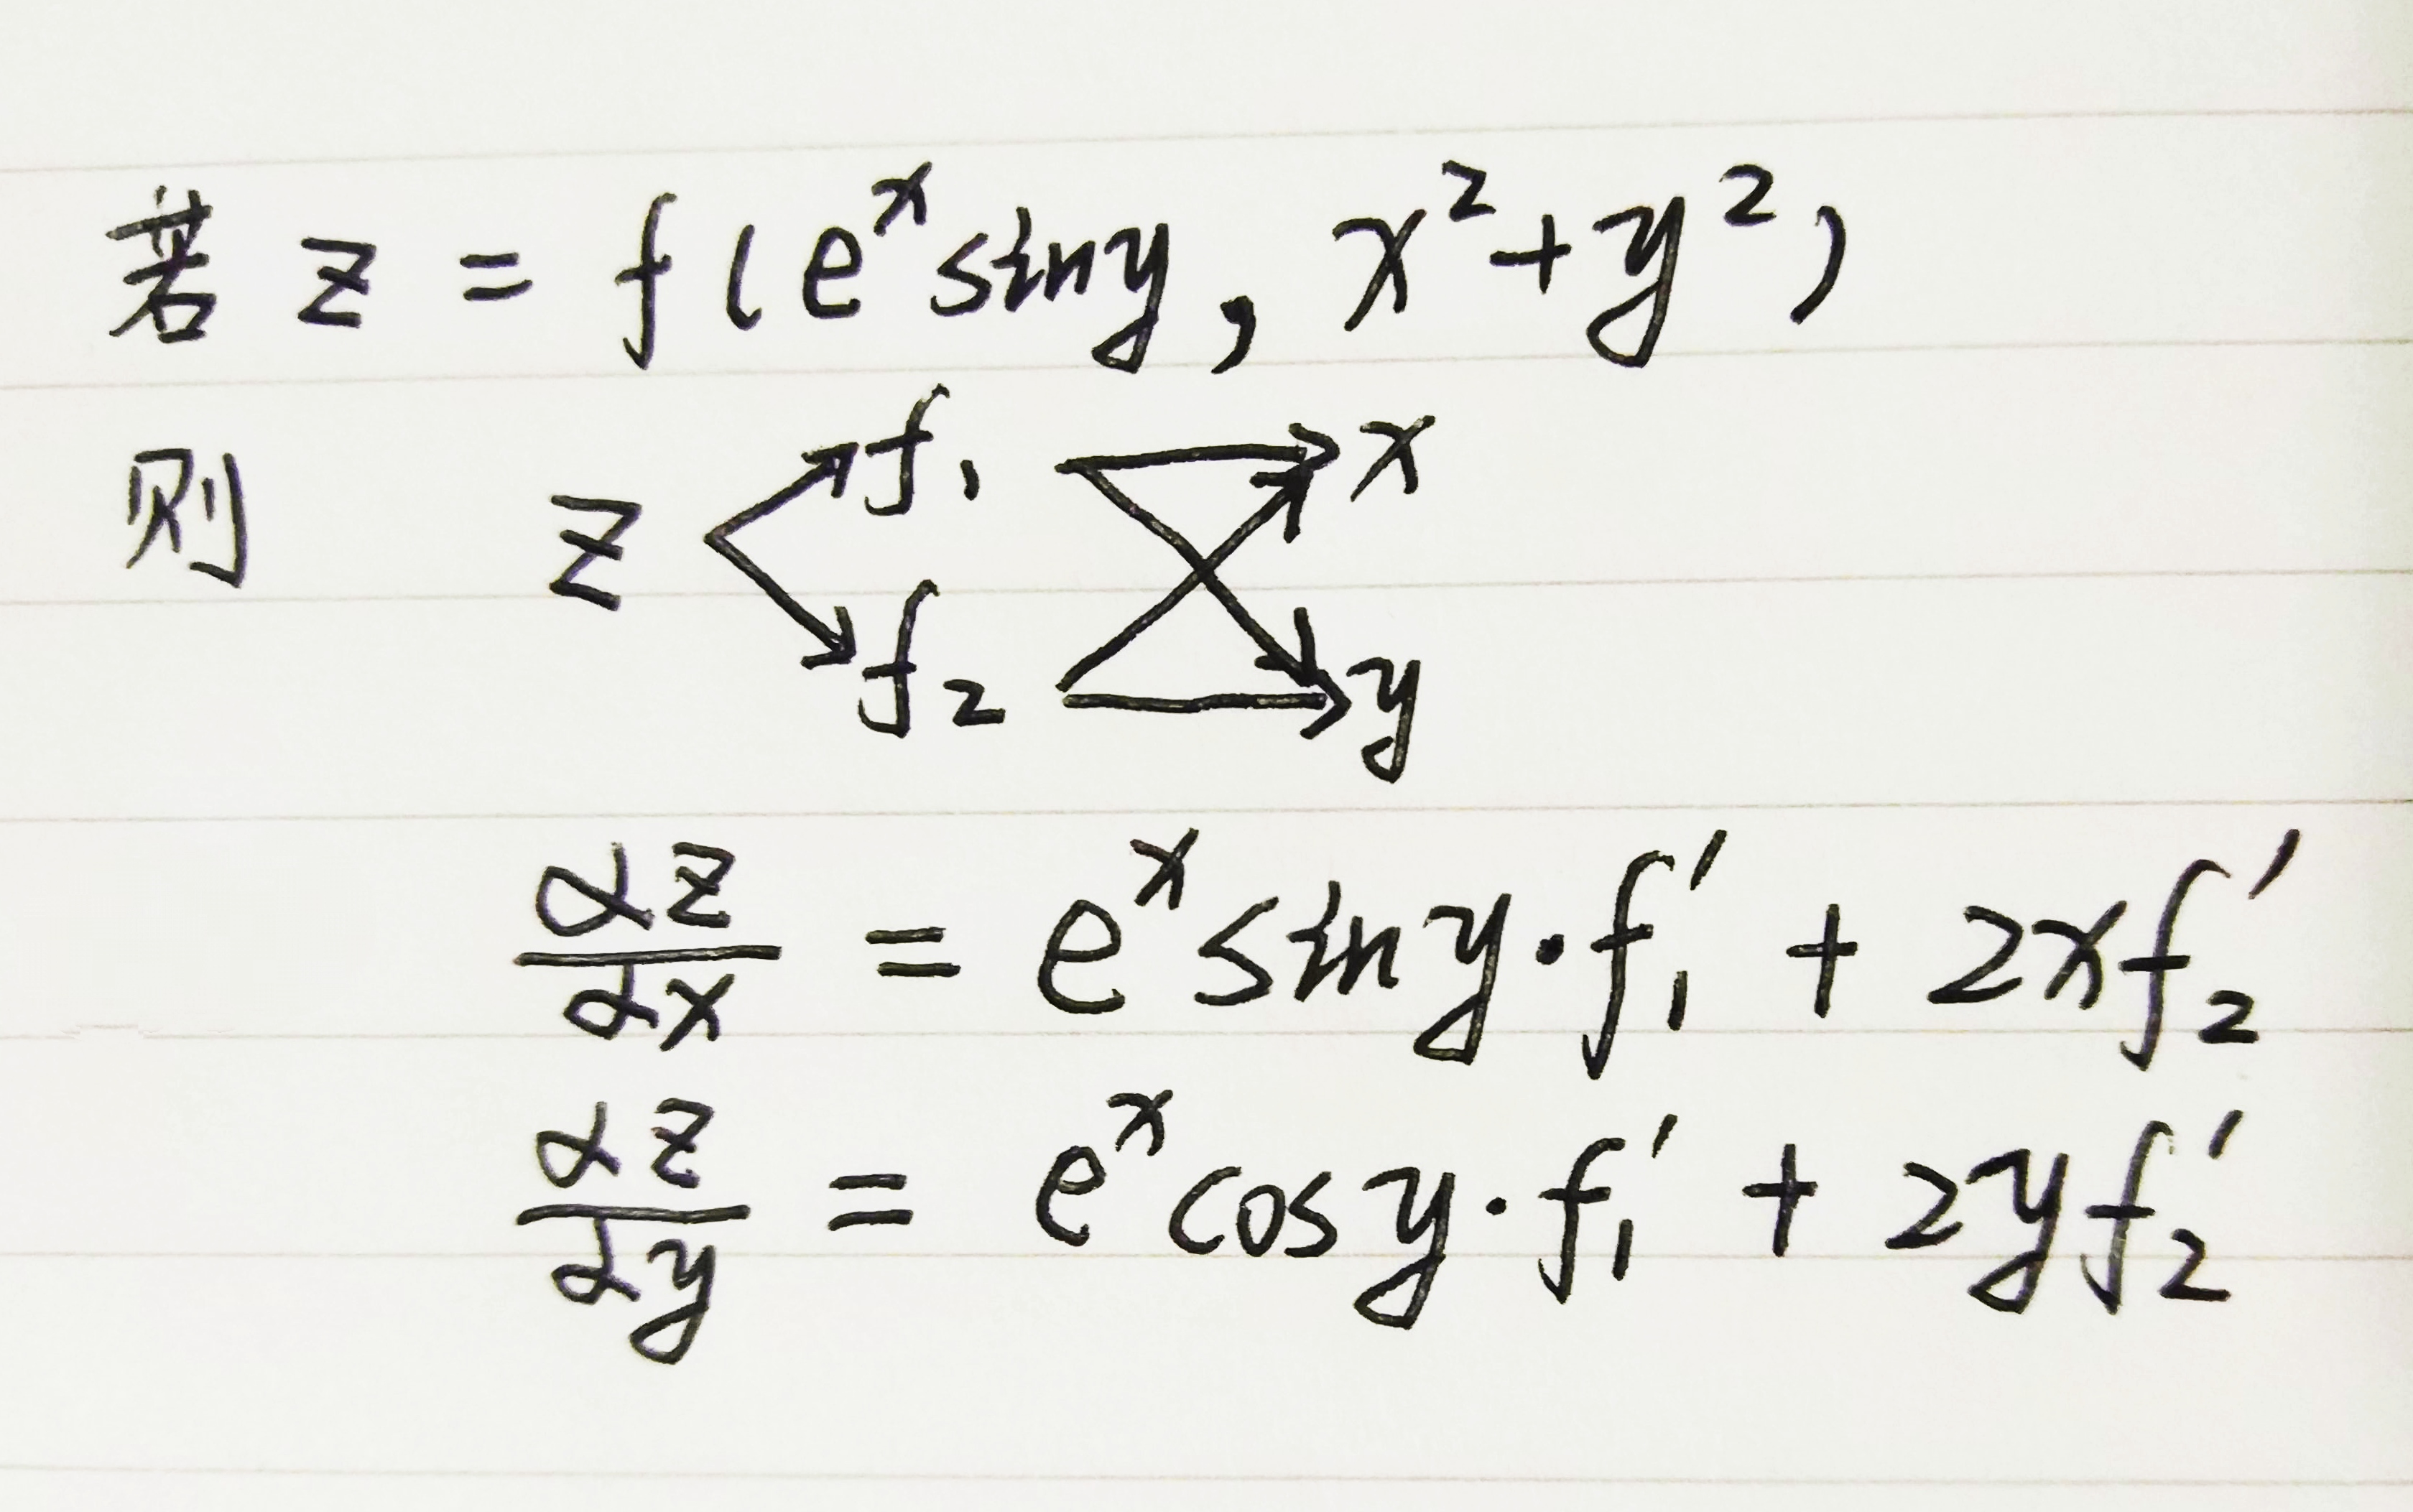 若 z = f(e^x sin y, x²+y²)
则 z f₁ x
f₂ y
∂z/∂x = e^x sin y · f₁′ + 2x f₂′
∂z/∂y = e^x cos y · f₁′ + 2y f₂′